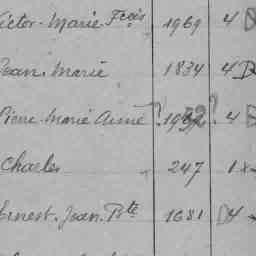 Victor-Marie-Fçois 1969 4 D
Jean, Marie 1834 4 D
Pierre Marie Aimé ? 32? 4
Charles 247 1
Ernest, Jean, Bte 1681 4